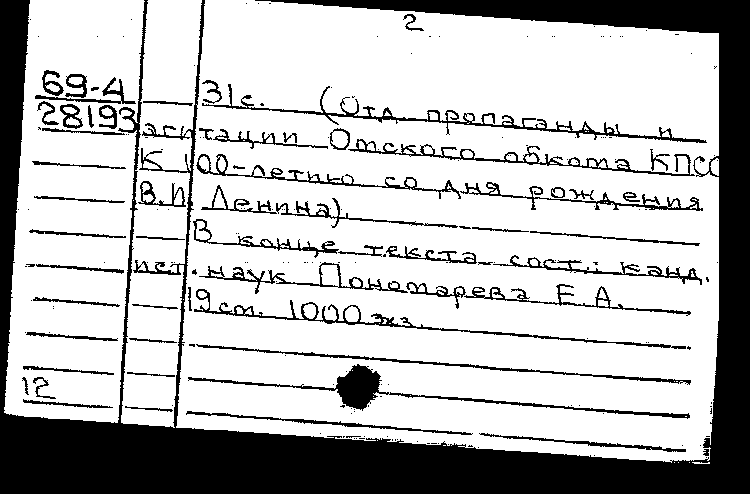 2
69-4
28193
31с. (Отд. пропаганды и
агитации Омского обкома КПСС
К 100-летию со дня рождения
В.И. Ленина).
В конце текста сост.: канд.
ист. наук Пономарева Е.А.
19см. 1000 экз.
12